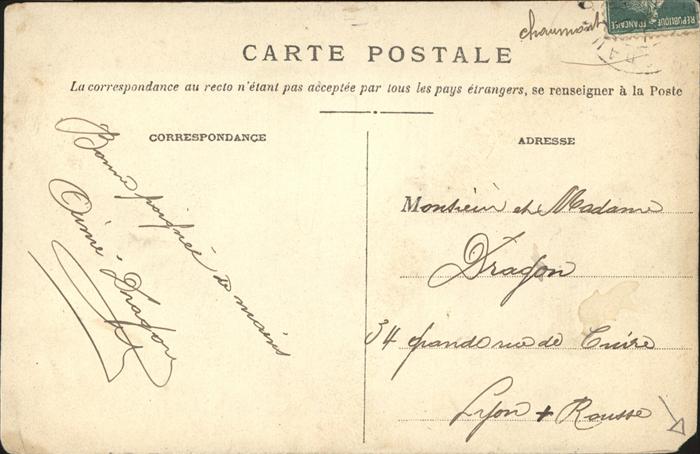 chaumont
REPUBLIQUE FRANÇAISE
CARTE POSTALE
La correspondance au recto n'étant pas acceptée par tous les pays étrangers, se renseigner à la Poste
CORRESPONDANCE
Bonne poignée de mains
Aimé Dragon
ADRESSE
Monsieur et Madame
Dragon
34 grande rue de Cuire
Lyon + Rousse